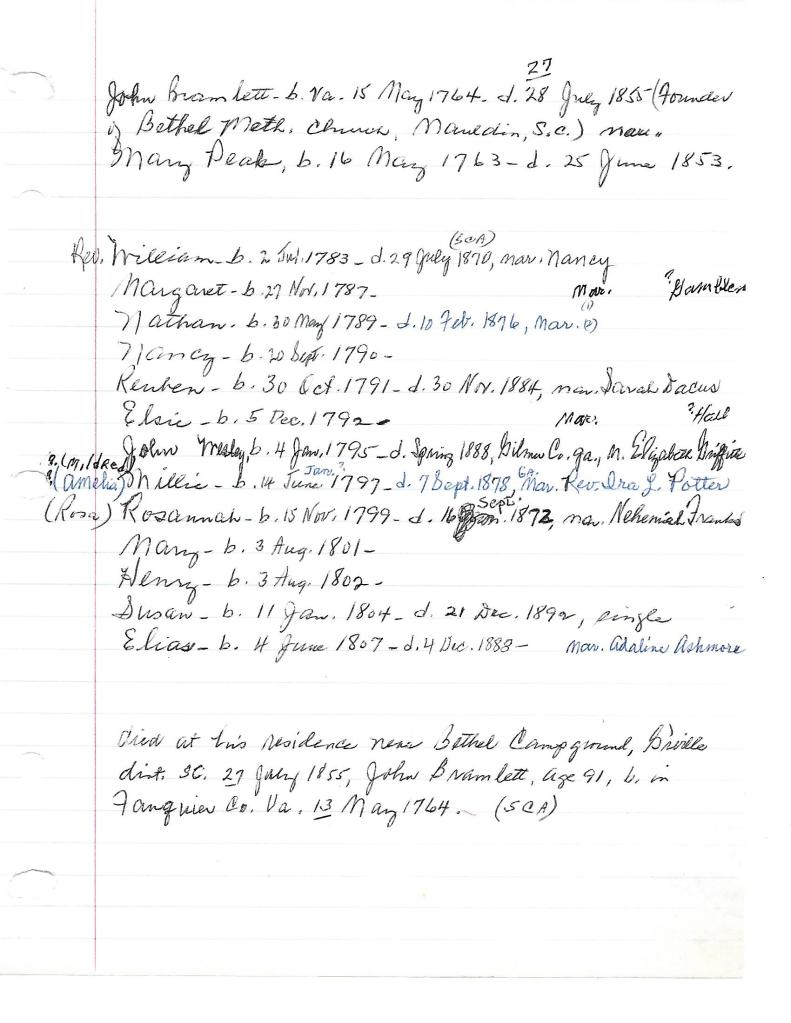 27
John Bramlett - b. Va. 15 May 1764 - d. 28 July 1855 (Founder
of Bethel Meth. Church, Mauldin, S.C.) mar.
Mary Peak, b. 16 May 1763 - d. 25 June 1853.
(SCA)
Rev. William - b. 2 1783 - d. 29 July 1870, mar. Nancy
Margaret - b. 27 Nov. 1787 - mar. ?Gamblen
(1)
Nathan - b. 30 May 1789 - d. 10 Feb. 1876, mar. (2)
Nancy - b. 20 Sept. 1790 -
Reuben - b. 30 Oct. 1791 - d. 30 Nov. 1884, mar. Sarah Dacus
Elsie - b. 5 Dec. 1792 - mar. ?Hall
John Wesley, b. 4 Jan. 1795 - d. Spring 1888, Gilmer Co. Ga., m. Elizabeth Griffith
?(Mildred) Jan.? Ga.
?(Amelia) Millie - b. 14 June 1797 - d. 7 Sept. 1878, mar. Rev. Ira L. Potter
Sept.
(Rosa) Rosannah - b. 15 Nov. 1799 - d. 16 1872, mar. Nehemiah Franks
Mary - b. 3 Aug. 1801 -
Henry - b. 3 Aug. 1802 -
Susan - b. 11 Jan. 1804 - d. 21 Dec. 1892, single
Elias - b. 4 June 1807 - d. 4 Dec. 1883 - mar. Adaline Ashmore
Died at his residence near Bethel Campground, G'ville
dist. SC. 27 July 1855, John Bramlett, age 91, b. in
Fauquier Co. Va. 13 May 1764. (SCA)